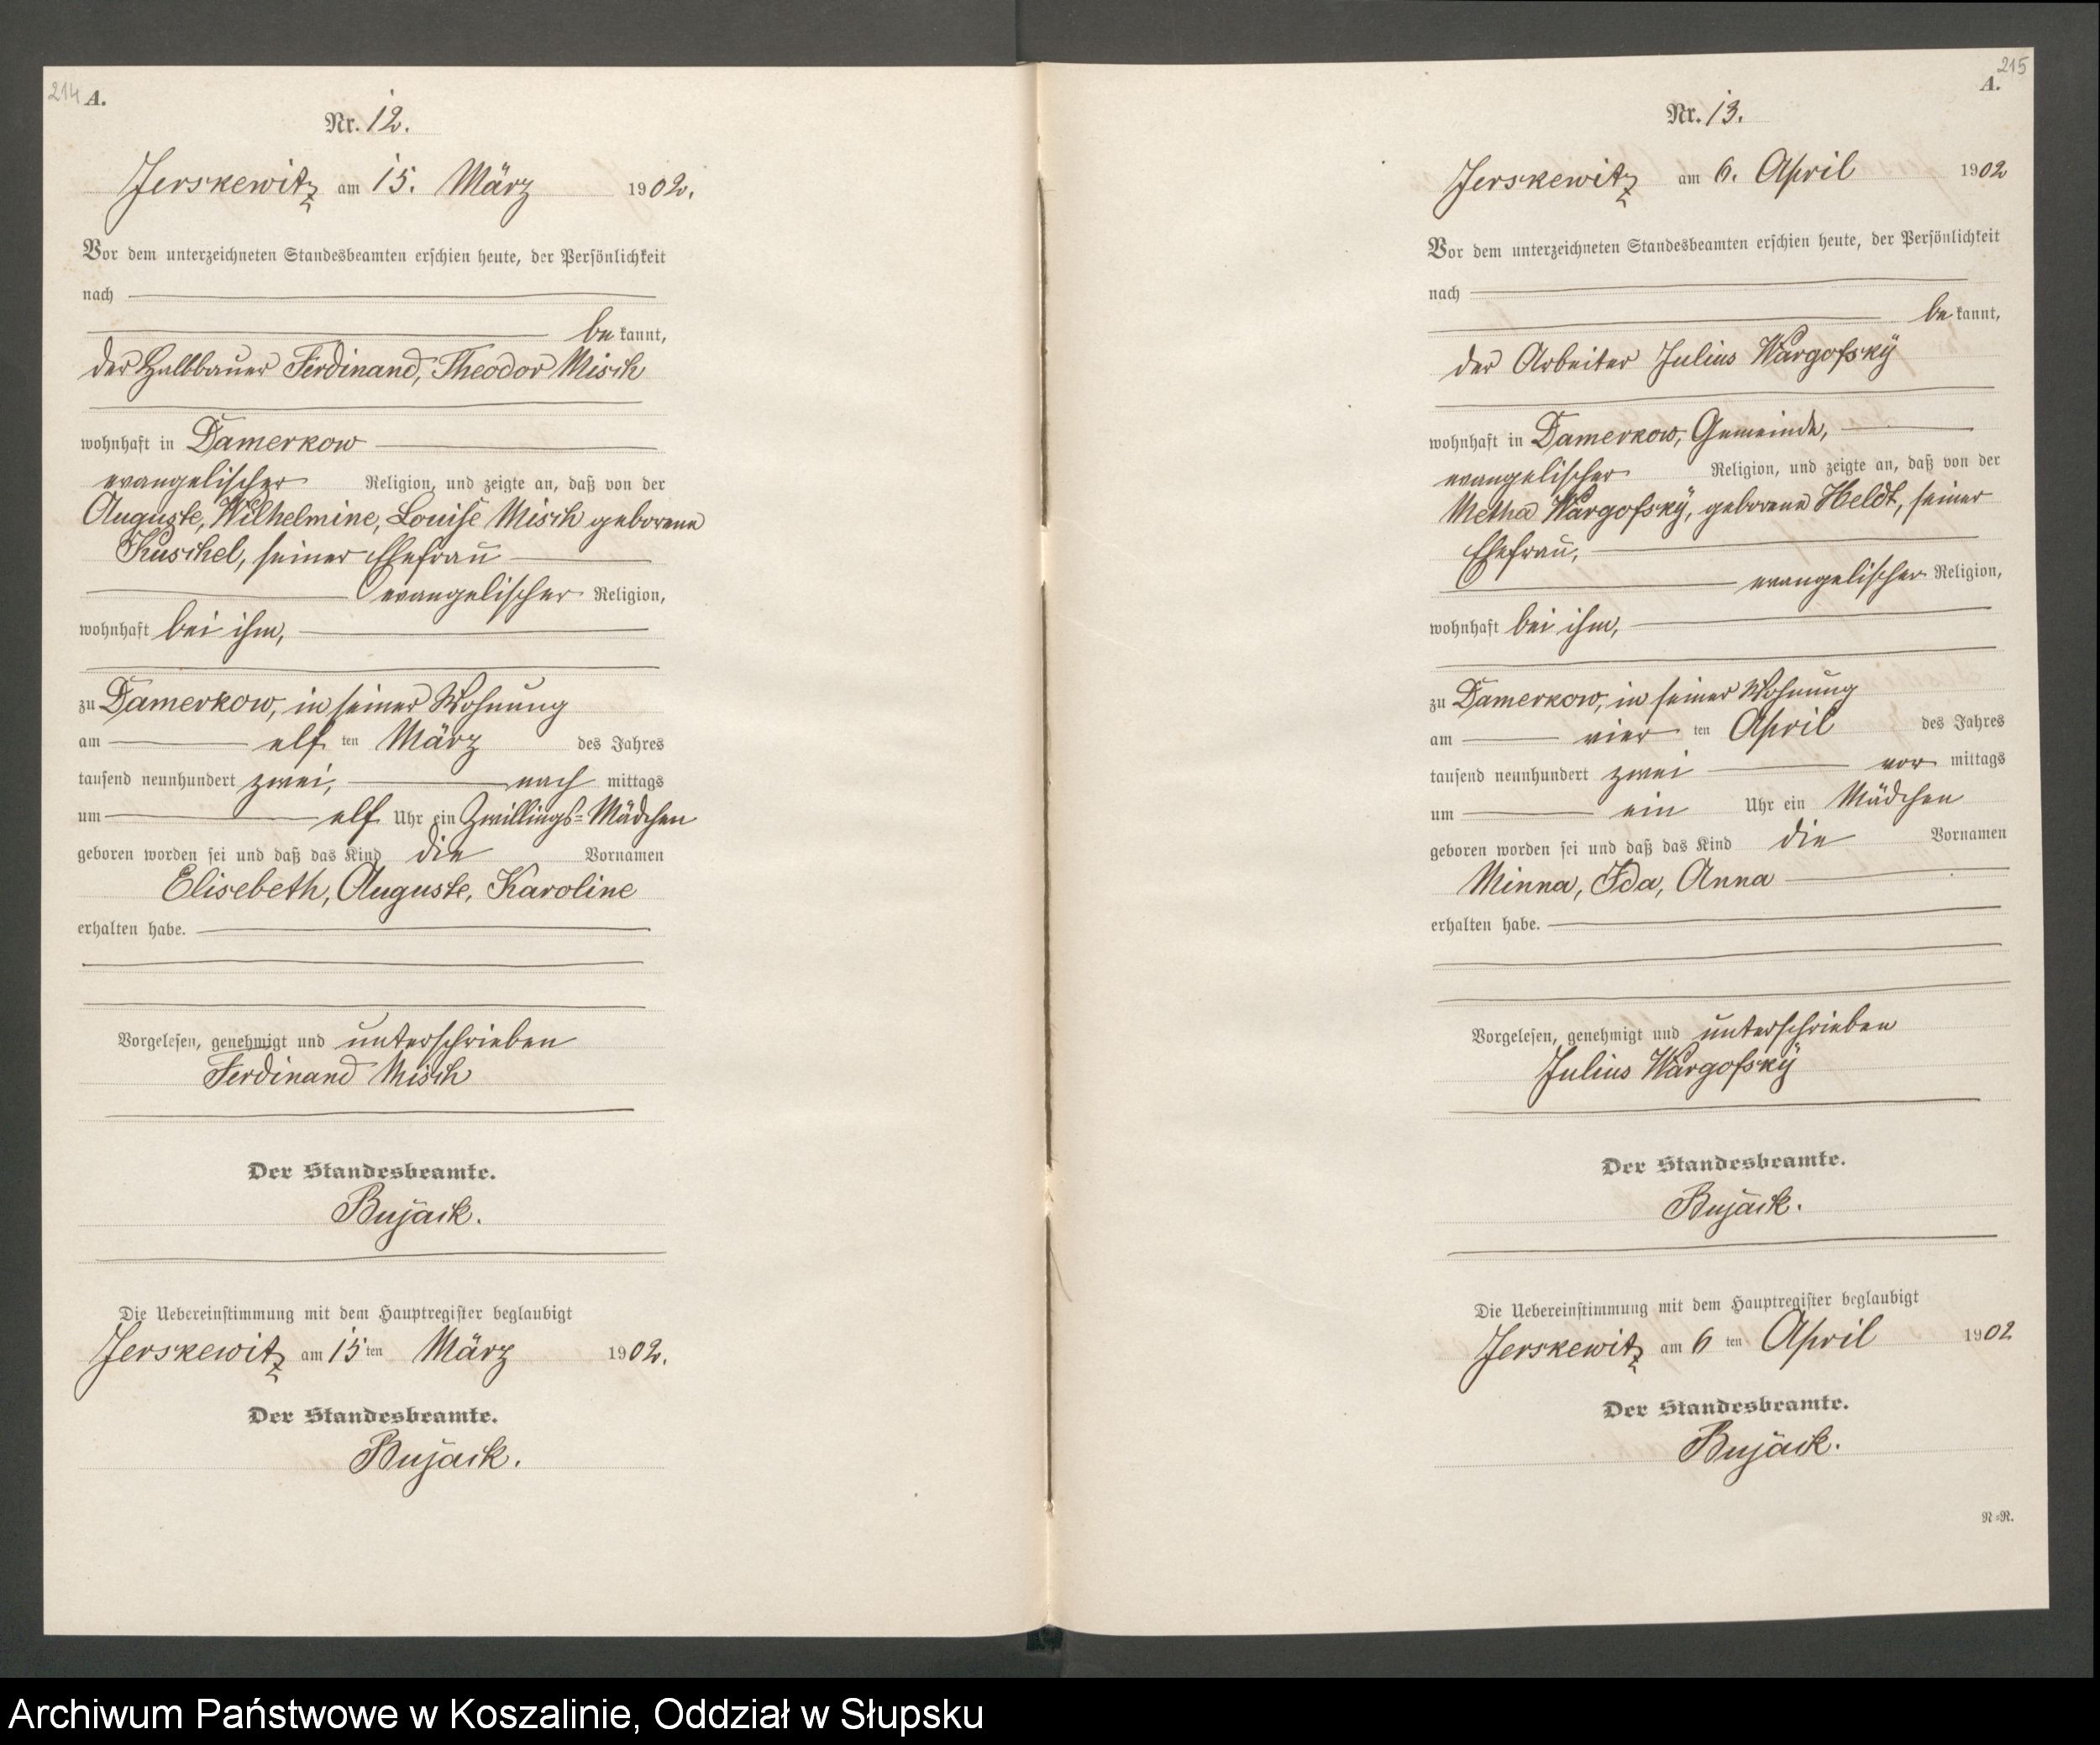 214 A.
Nr. 12.
Jerskewitz am 15. März 1902.
Vor dem unterzeichneten Standesbeamten erschien heute, der Persönlichkeit
nach
be kannt,
der Halbbauer Ferdinand, Theodor Misch
wohnhaft in Damerkow
evangelischer Religion, und zeigte an, daß von der
Auguste, Wilhelmine, Louise Misch geborene
Kuschel, seiner Ehefrau
evangelischer Religion,
wohnhaft bei ihm,
zu Damerkow, in seiner Wohnung
am elf ten März des Jahres
tausend neunhundert zwei, nach mittags
um elf Uhr ein Zwillings-Mädchen
geboren worden sei und daß das Kind die Vornamen
Elisebeth, Auguste, Karoline
erhalten habe.
Vorgelesen, genehmigt und unterschrieben
Ferdinand Misch
Der Standesbeamte.
Bujack.
Die Uebereinstimmung mit dem Hauptregister beglaubigt
Jerskewitz am 15 ten März 1902.
Der Standesbeamte.
Bujack.
215
A.
Nr. 13.
Jerskewitz am 6. April 1902
Vor dem unterzeichneten Standesbeamten erschien heute, der Persönlichkeit
nach
be kannt,
der Arbeiter Julius Wargofsky
wohnhaft in Damerkow, Gemeinde,
evangelischer Religion, und zeigte an, daß von der
Metha Wargofsky, geborene Heldt, seiner
Ehefrau,
evangelischer Religion,
wohnhaft bei ihm,
zu Damerkow, in seiner Wohnung
am vier ten April des Jahres
tausend neunhundert zwei vor mittags
um ein Uhr ein Mädchen
geboren worden sei und daß das Kind die Vornamen
Minna, Ida, Anna
erhalten habe.
Vorgelesen, genehmigt und unterschrieben
Julius Wargofsky
Der Standesbeamte.
Bujack.
Die Uebereinstimmung mit dem Hauptregister beglaubigt
Jerskewitz am 6 ten April 1902
Der Standesbeamte.
Bujack.
N=R.
Archiwum Państwowe w Koszalinie, Oddział w Słupsku